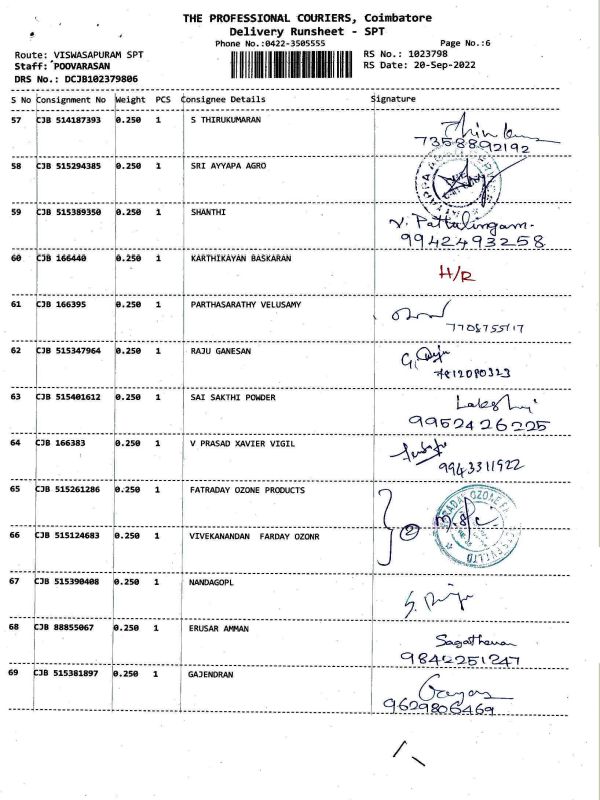 THE PROFESSIONAL COURIERS, Coimbatore
Delivery Runsheet - SPT
Phone No.:0422-3505555
Page No.:6
Route: VISWASAPURAM SPT
RS No.: 1023798
Staff: POOVARASAN
RS Date: 20-Sep-2022
DRS No.: DCJB102379806
S No Consignment No Weight PCS Consignee Details Signature
57 CJB 514187393 0.250 1 S THIRUKUMARAN
7358892192
58 CJB 515294385 0.250 1 SRI AYYAPA AGRO
59 CJB 515389350 0.250 1 SHANTHI
V. Pattulingam.
9942493258
60 CJB 166440 0.250 1 KARTHIKAYAN BASKARAN
H/R
61 CJB 166395 0.250 1 PARTHASARATHY VELUSAMY
62 CJB 515347964 0.250 1 RAJU GANESAN
G. Raju
7812080323
63 CJB 515401612 0.250 1 SAI SAKTHI POWDER
9952426225
64 CJB 166383 0.250 1 V PRASAD XAVIER VIGIL
9943311922
65 CJB 515261286 0.250 1 FATRADAY OZONE PRODUCTS
2
66 CJB 515124683 0.250 1 VIVEKANANDAN FARDAY OZONR
67 CJB 515390408 0.250 1 NANDAGOPL
68 CJB 88855067 0.250 1 ERUSAR AMMAN
9842251247
69 CJB 515381897 0.250 1 GAJENDRAN
9629806469